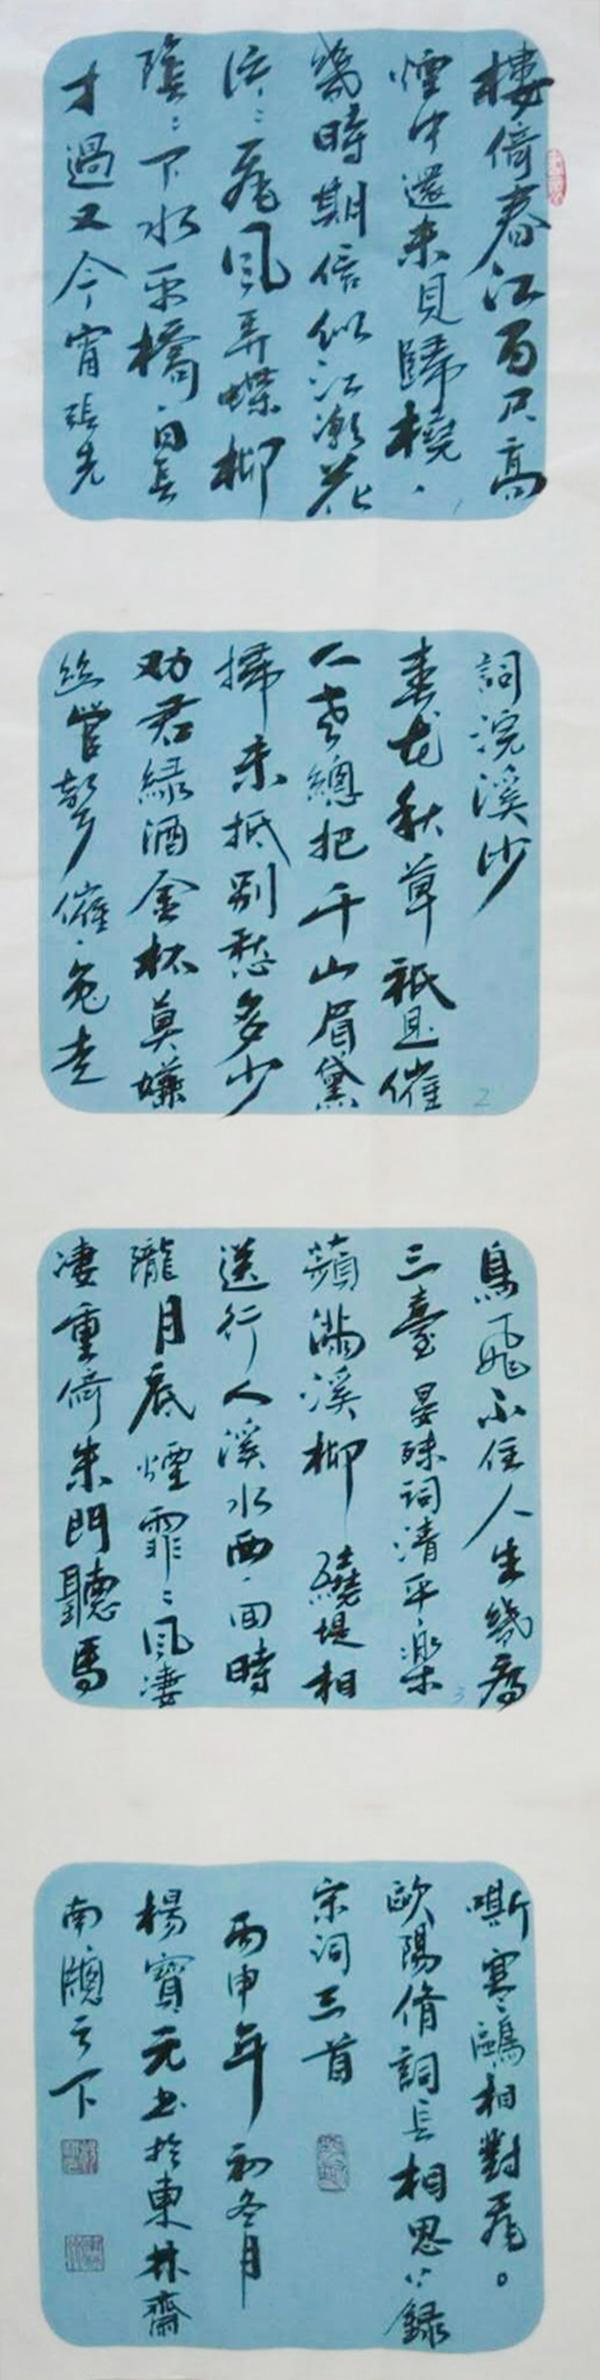 樓倚春江百尺高
煙中還未見歸橈、
幾時期信似江潮花
片々飛風弄蝶柳
陰々下水平橋、日長
才過又今宵張先
詞浣溪沙
春花秋草祗是催
人老總把千山眉黛
掃未抵別愁多少
劝君綠酒金杯莫嫌
絲管聲催、兔走
烏飛不住人生幾度
三臺晏殊詞清平樂
蘋滿溪柳繞堤相
送行人溪水西、回時
隴月底煙霏々風淒
淒重倚朱門聽馬
嘶寒々鷗相對飛。
歐陽脩詞長相思錄
宋詞三首
丙申年初冬月
楊寶元書於東林齋
南牕之下